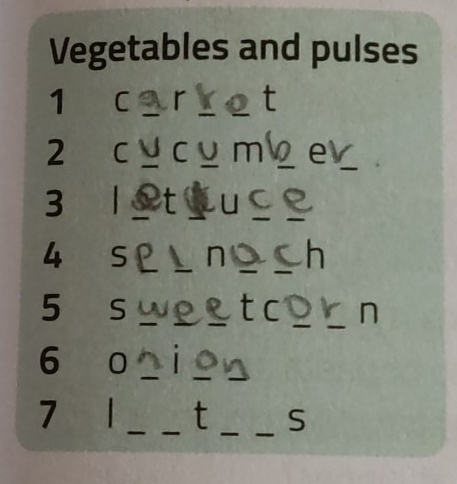 Vegetables and pulses
1 carrot
2 cucumber
3 lettuce
4 spinach
5 sweetcorn
6 onion
7 l _ _ t _ _ s